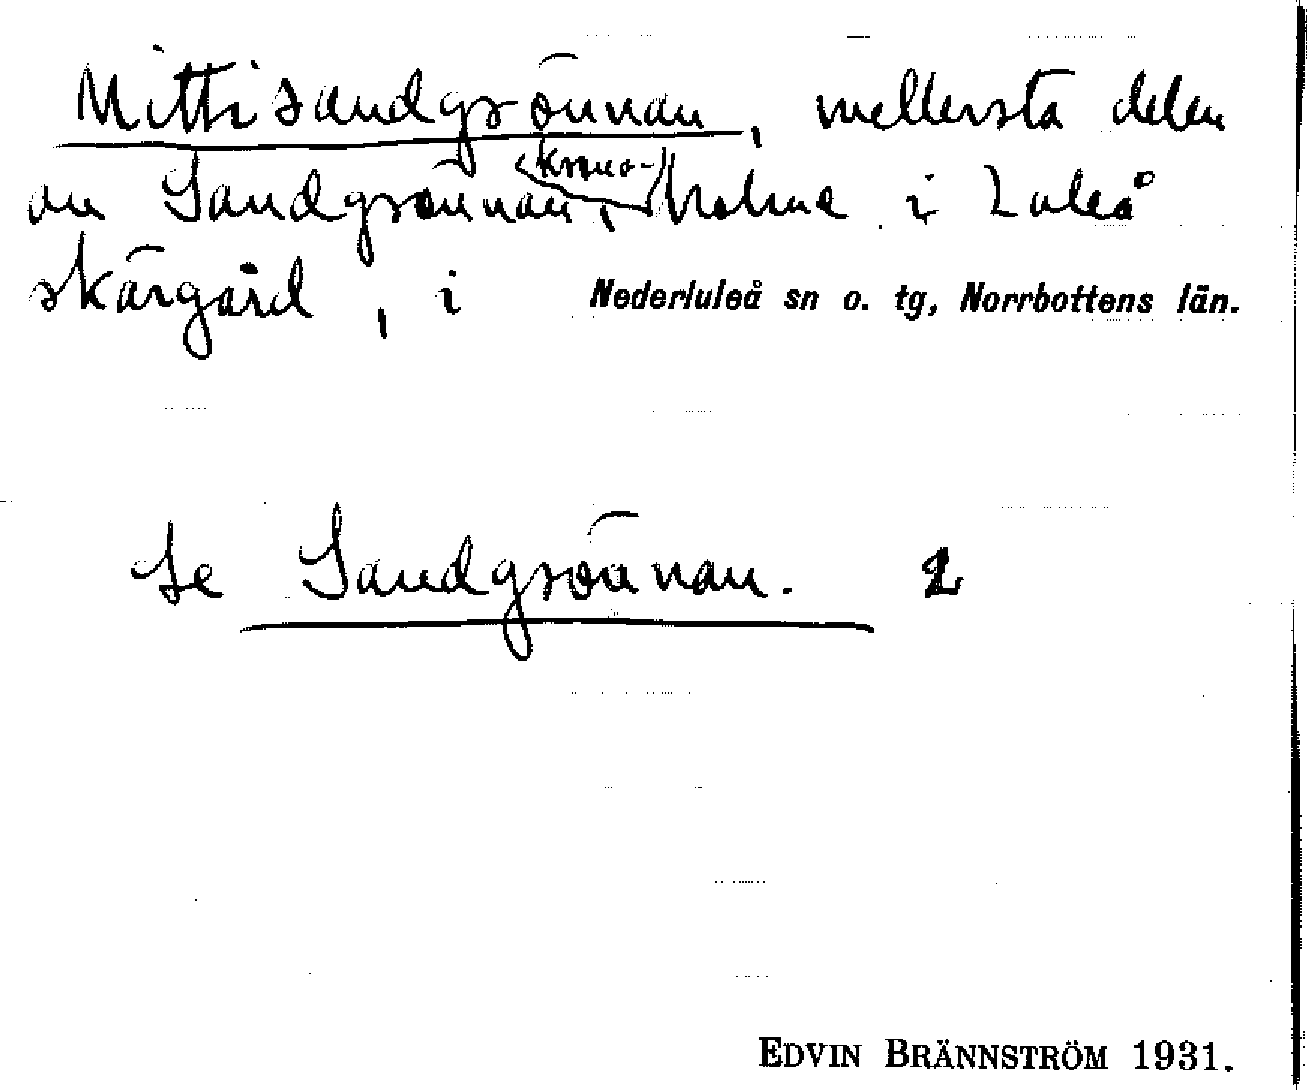 Mittisandgrönnan, mellersta delen
av Sandgrönnan, krono-holme i Luleå
skärgård, i Nederluleå sn o. tg, Norrbottens län.
Se Sandgrönnan. 2
EDVIN BRÄNNSTRÖM 1931.